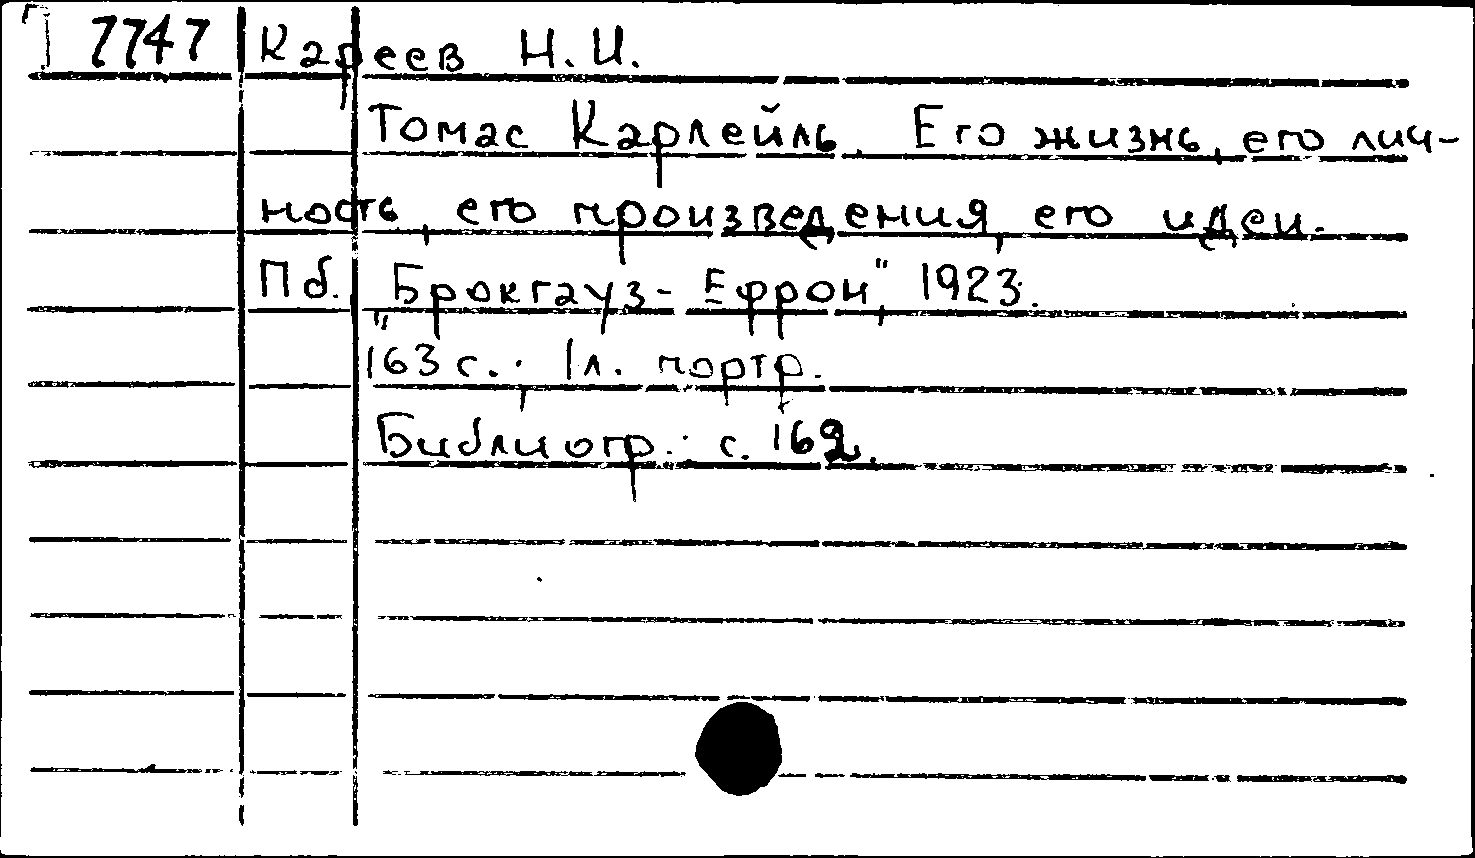 7747 Кареев Н.И.
Томас Карлейль. Его жизнь, его лич-
ность, его произведения, его идеи.
Пб. "Брокгауз-Ефрон", 1923.
163 с.; 1л. портр.
Библиогр.: с. 162.